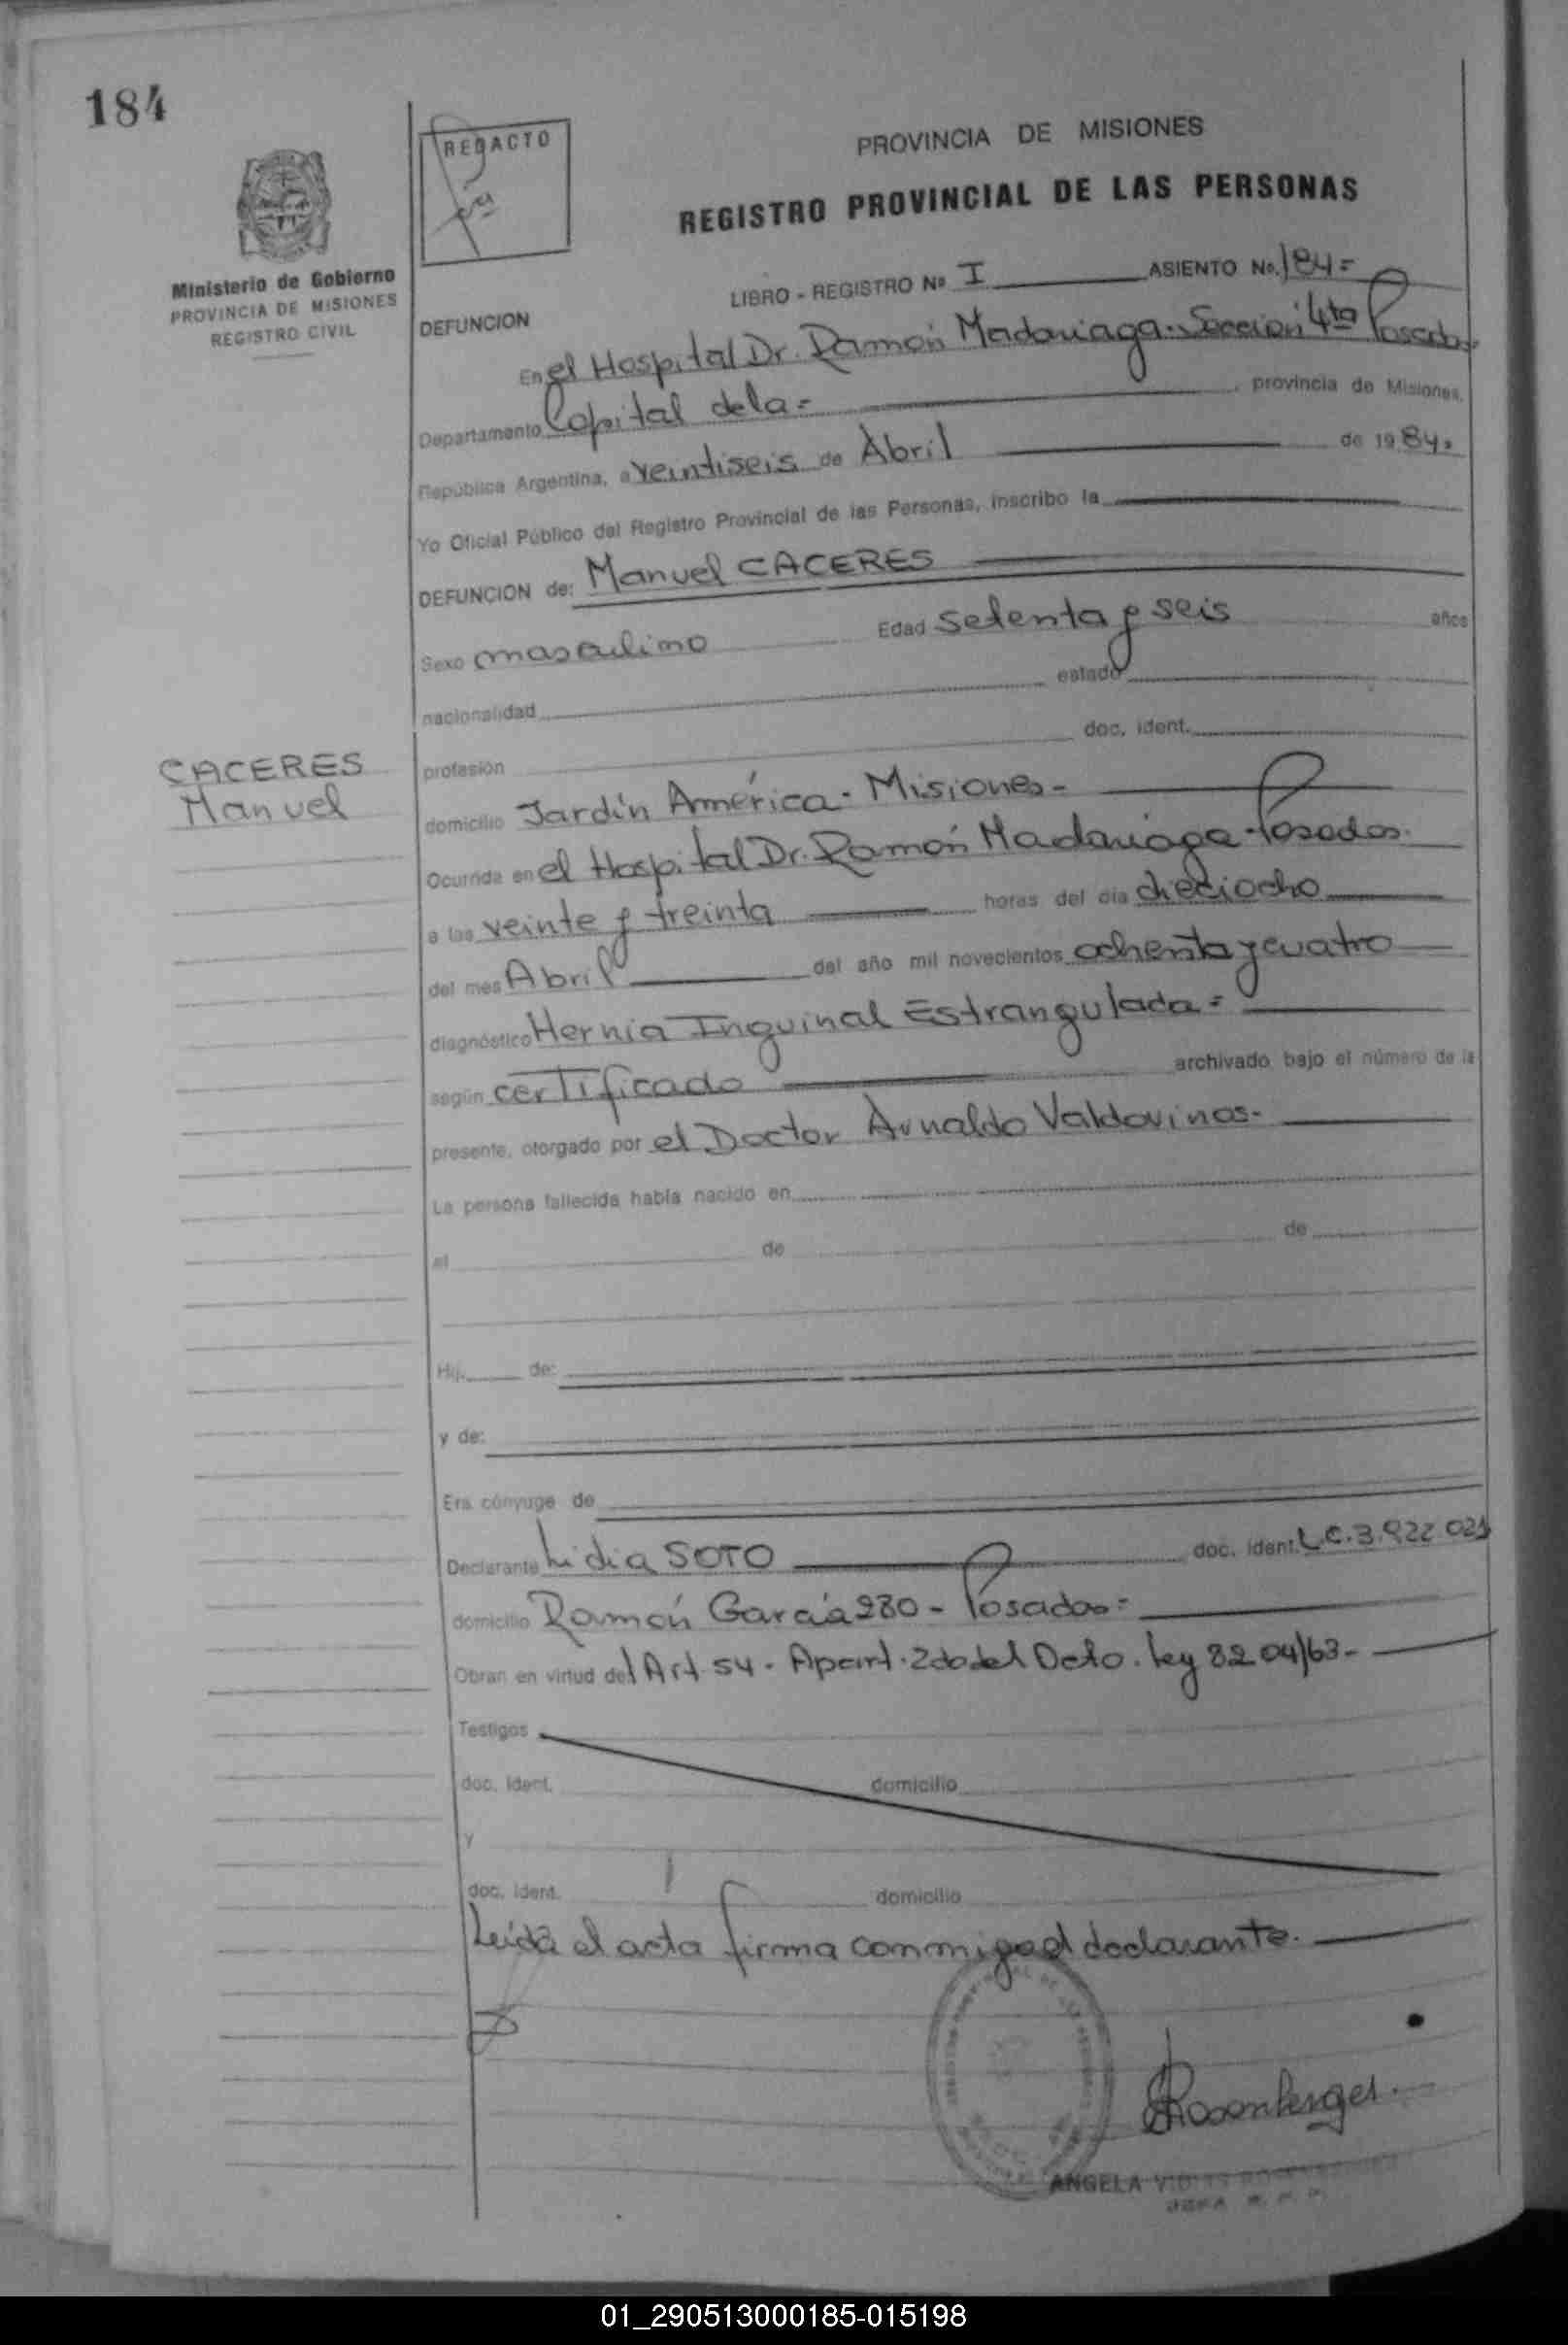 184
REDACTO
Ministerio de Gobierno
PROVINCIA DE MISIONES
REGISTRO CIVIL
PROVINCIA DE MISIONES
REGISTRO PROVINCIAL DE LAS PERSONAS
LIBRO - REGISTRO Nº I ASIENTO No. 184=
DEFUNCION
En el Hospital Dr. Ramón Madariaga. Sección 4ta Posadas
Departamento Capital de la = , provincia de Misiones,
República Argentina, a veintiseis de Abril de 1984.
Yo Oficial Público del Registro Provincial de las Personas, inscribo la
DEFUNCION de: Manuel CACERES
Sexo masculino Edad setenta y seis años
nacionalidad estado
profesión doc. ident.
CACERES
Manuel
domicilio Jardín América - Misiones -
Ocurrida en el Hospital Dr. Ramón Madariaga - Posadas.
a las veinte y treinta horas del día dieciocho
del mes Abril del año mil novecientos ochenta y cuatro
diagnóstico Hernia Inguinal Estrangulada =
según certificado archivado bajo el número de la
presente, otorgado por el Doctor Arnaldo Valdovinos -
La persona fallecida había nacido en
el de de
Hij de:
y de:
Era cónyuge de
Declarante Lidia SOTO doc. ident. L.C. 3.922.021
domicilio Ramón García 280 - Posadas =
Obran en virtud del Art. 54 - Apart. 2do del Dcto. Ley 8204/63 -
Testigos
doc. ident. domicilio
y
doc. ident. domicilio
Leída el acta firma conmigo el declarante.
Rosenberger.
ANGELA
01_290513000185-015198